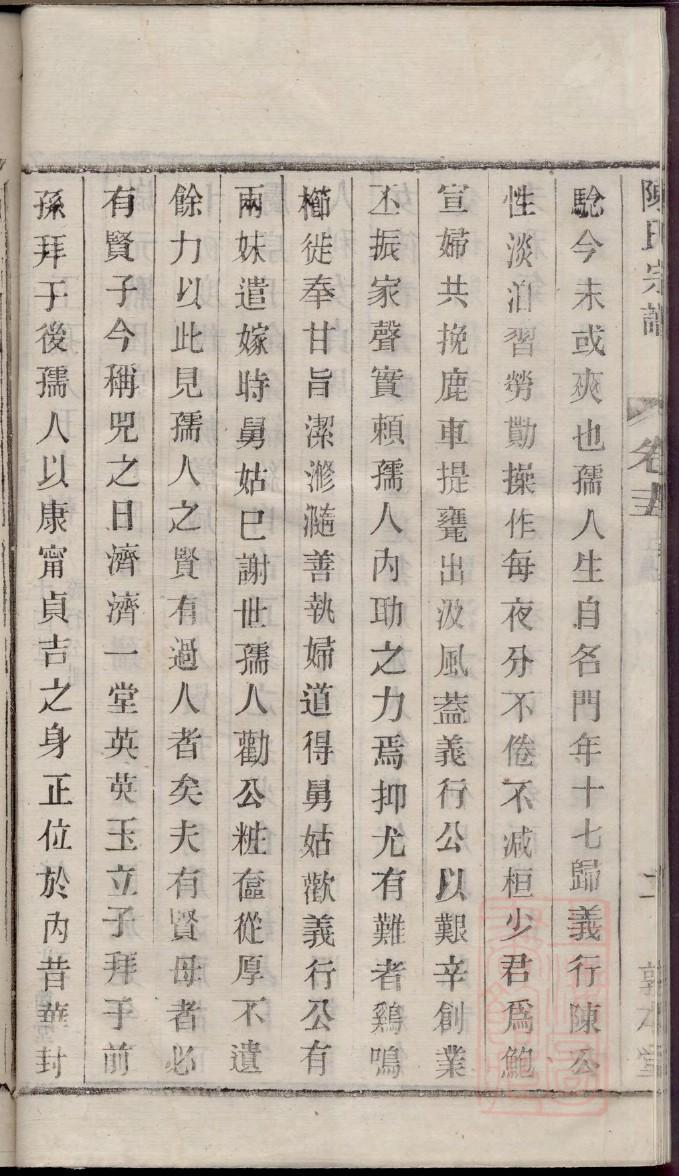 陳氏宗譜 卷五 敦本堂
騐今未或爽也孺人生自名門年十七歸義行陳公
性淡泊習勞勩操作每夜分不倦不减桓少君爲鮑
宣婦共挽鹿車提甕出汲風葢義行公以艱辛創業
丕振家聲實頼孺人内助之力焉抑尤有難者鷄鳴
櫛徙奉甘旨潔滫瀡善執婦道得舅姑歡義行公有
兩妹遣嫁時舅姑巳謝世孺人勸公粧奩從厚不遺
餘力以此見孺人之賢有過人者矣夫有賢母者必
有賢子今稱兕之日濟濟一堂英英玉立子拜于前
孫拜于後孺人以康甯貞吉之身正位於内昔華封